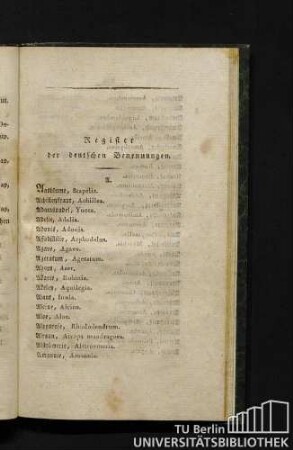 Register
der deutschen Benennungen.
A.
Aasblume, Stapelia.
Achillenkraut, Achillea.
Adamsnadel, Yucca.
Adelie, Adelia.
Adonis, Adonis.
Affodillilie, Asphodelus.
Agave, Agave.
Ageratum, Ageratum.
Ahorn, Acer.
Akazie, Robinia.
Akelei, Aquilegia.
Alant, Inula.
Alcine, Alcina.
Aloe, Aloe.
Alpenrose, Rhododendrum.
Alraun, Atropa mandragora.
Alströmerie, Alstroemeria.
TU Berlin
UNIVERSITÄTSBIBLIOTHEK